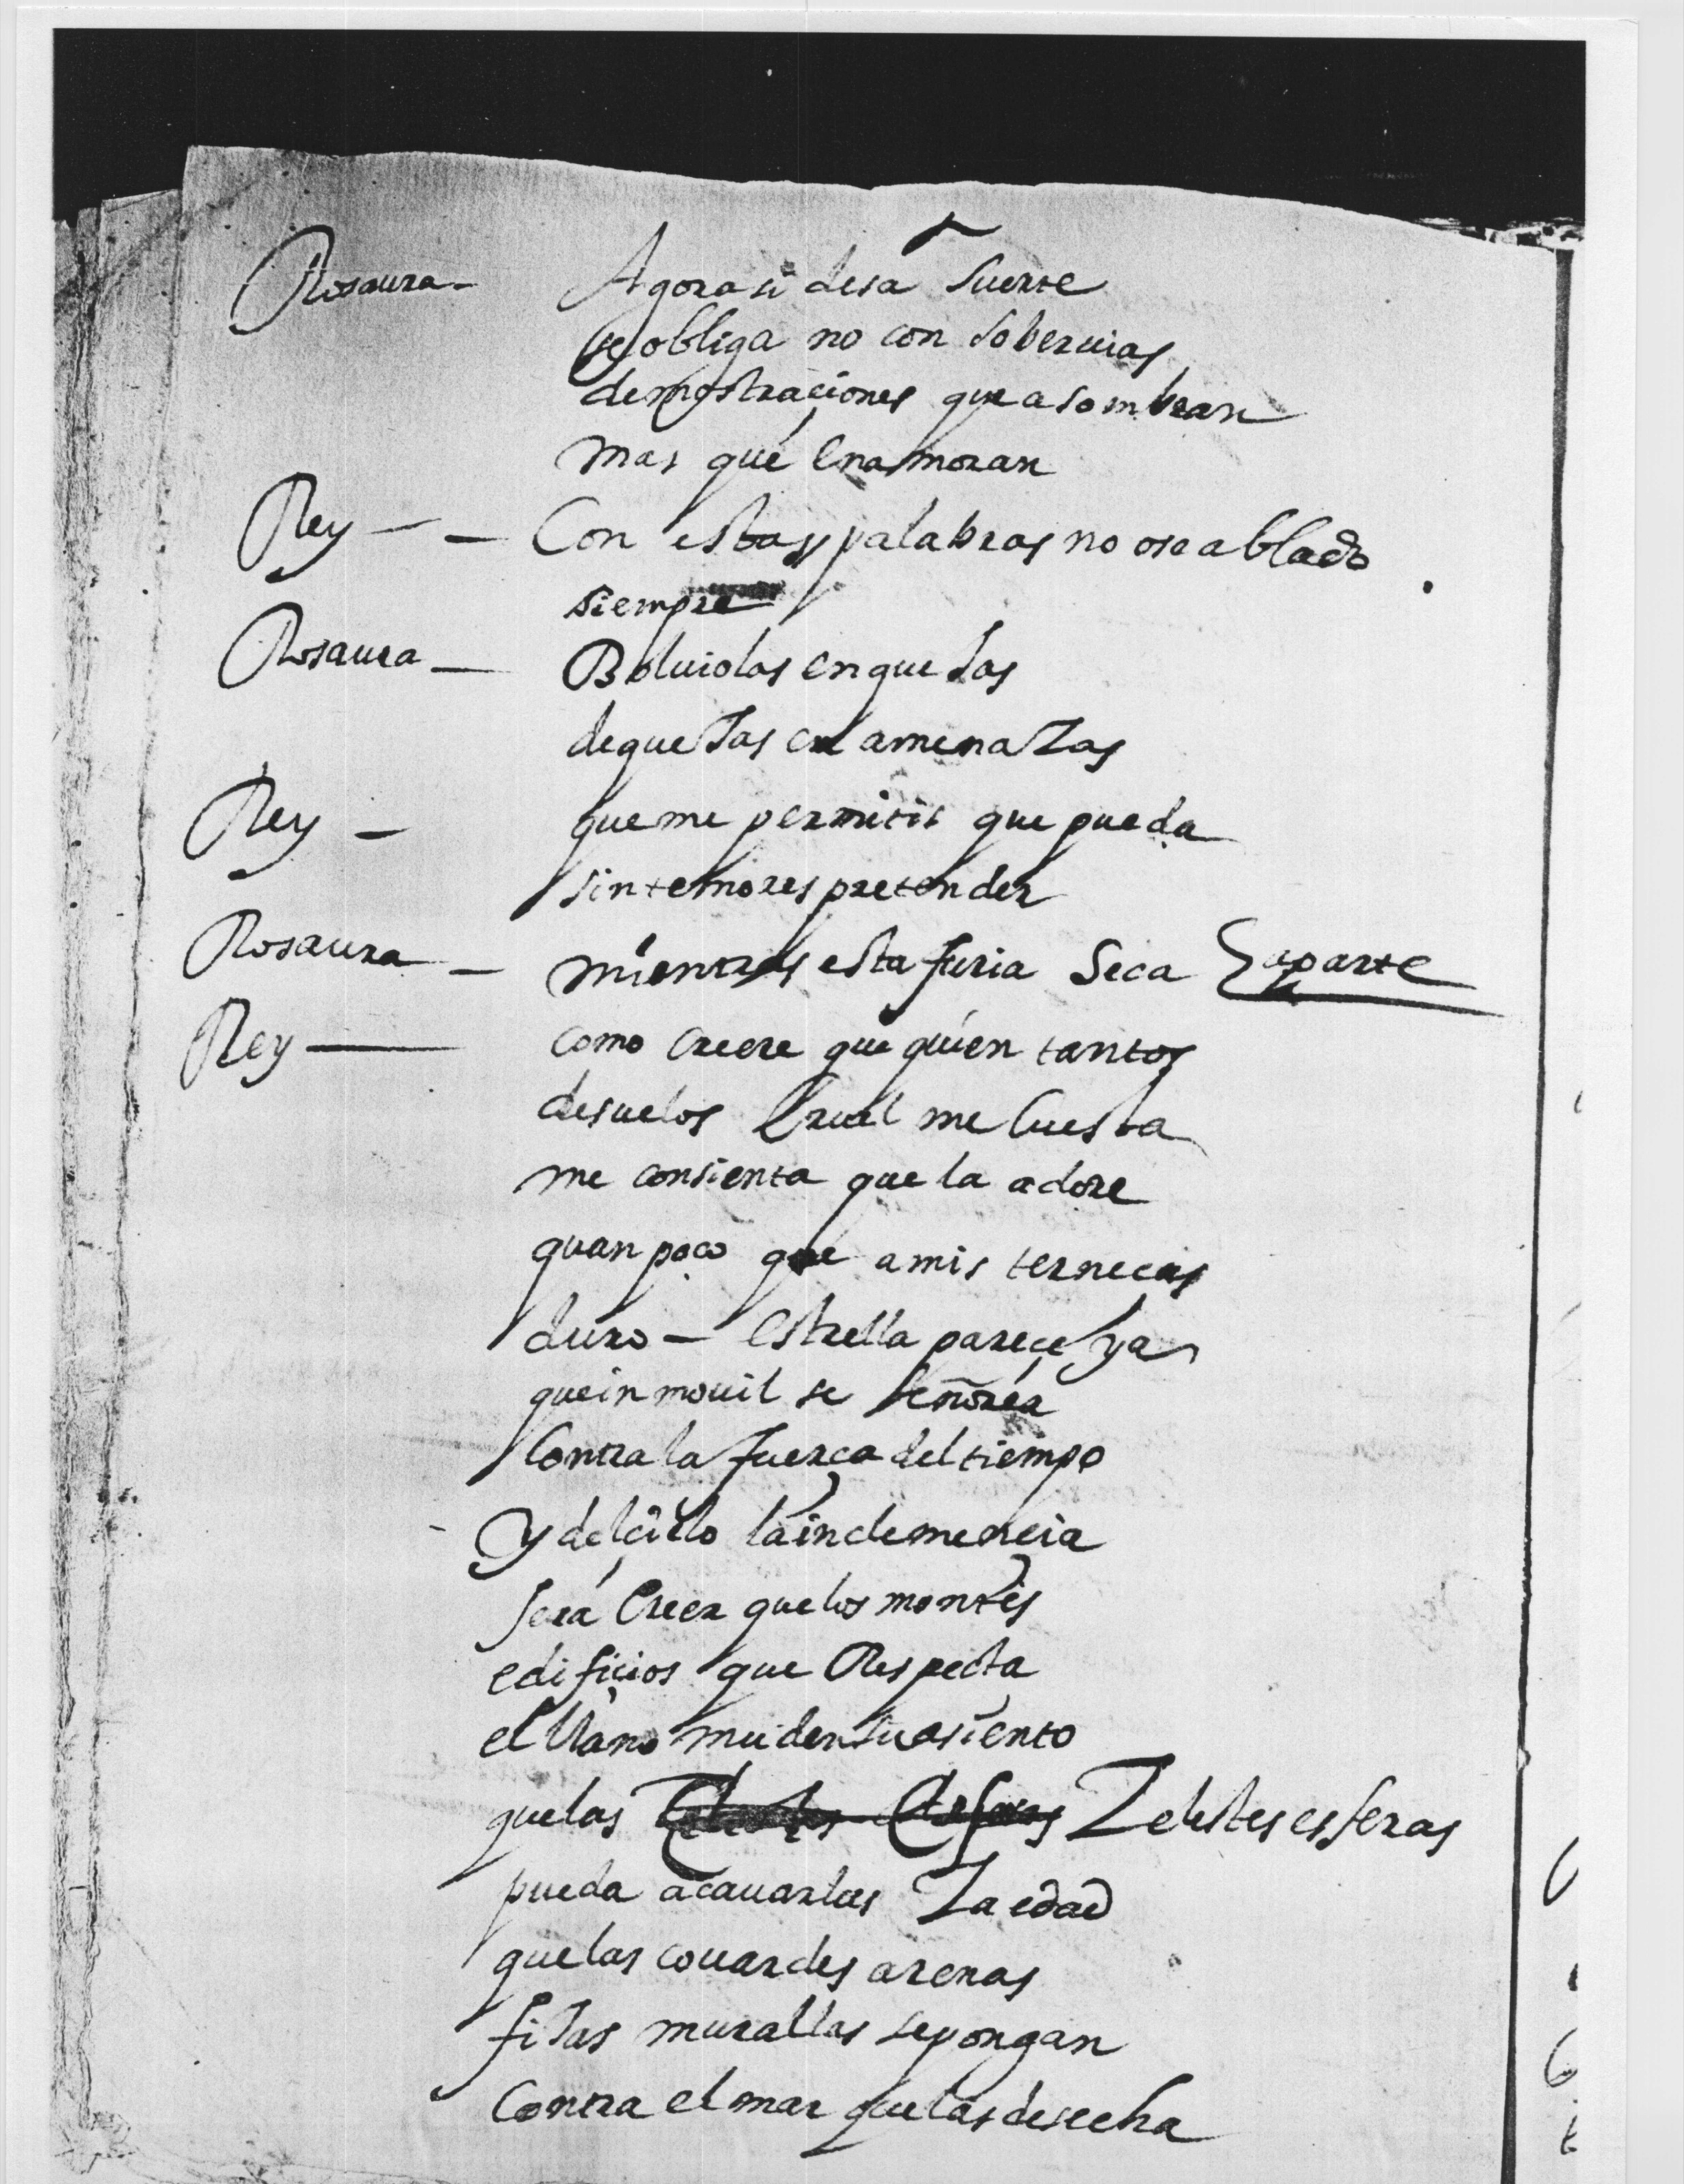 Rosaura – Agora si desa suerte
se obliga no con soberuias
demostraçiones que asombran
mas que enamoran
Rey – – Con estas palabras no os e ablado
siempre
Rosaura – Boluiolas en queJas
de queJas en amenaZas
Rey – que me permitis que pueda
sin temores pretender
Rosaura – mientras esta furia seca aparte
Rey — como creere que quien tantos
desuelos cruel me cuesta
me consienta que la adore
quan poco que a mis terneças
duro – estrella pareçe ya
que inmouil se señorea
contra la fuerça del tiempo
y del çielo la inclemençia
sera creer que los montes
edifiçios que Respecta
el llano muden su asiento
que las Zelestes esferas
pueda acauarlas La edad
que las couardes arenas
fiJas murallas se pongan
contra el mar que las desecha